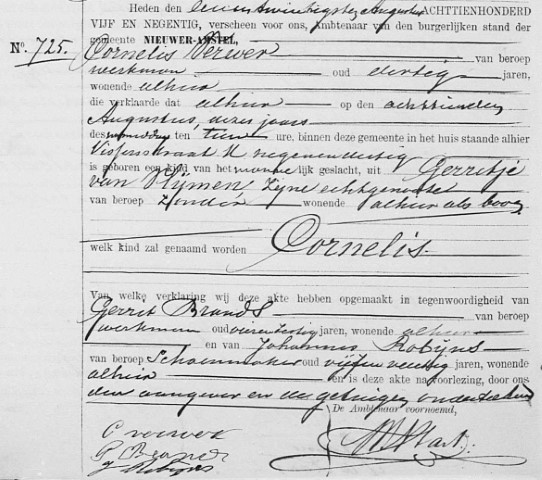 Heden den eenentwintigsten Augustus ACHTTIENHONDERD
VIJF EN NEGENTIG, verscheen voor ons, Ambtenaar van den burgerlijken stand der
gemeente NIEUWER-AMSTEL,
No. 725. Cornelis Verwer van beroep
werkman oud dertig jaren,
wonende alhier
die verklaarde dat alhier op den achttienden
Augustus, dezes jaars
des ten tien ure, binnen deze gemeente in het huis staande alhier
negenendertig
is geboren een kind van het mannelijk geslacht, uit Gerritje
van Vlijmen, zijne echtgenoote
van beroep zonder wonende alhier als boven
welk kind zal genaamd worden Cornelis.
Van welke verklaring wij deze akte hebben opgemaakt in tegenwoordigheid van
Gerrit Brands van beroep
werkman oud jaren, wonende alhier
en van Johannes Robijns
van beroep Schoenmaker oud vijfenveertig jaren, wonende
alhier en is deze akte na voorlezing, door ons
den aangever en de getuigen onderteekend
De Ambtenaar voornoemd,
C Verwer
G Brands
J Robijns